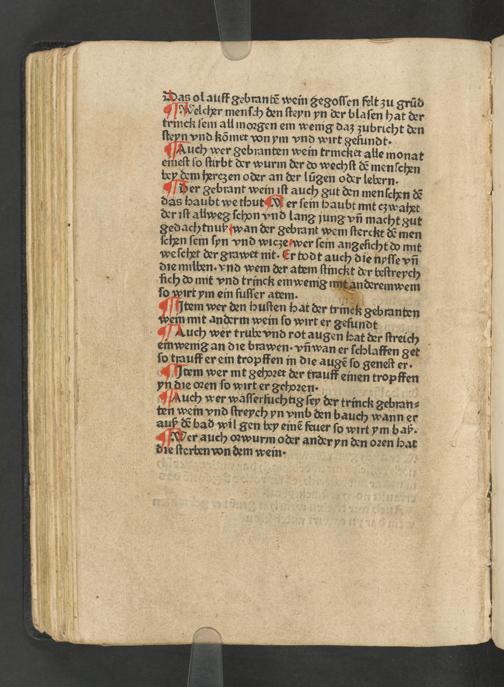 Das ol auff gebrantē wein gegossen felt zu grūd
¶ Welcher mensch den steyn yn der blasen hat der
trinck sein all morgen em wenig daz zubricht den
steyn vnd kōmet von ym vnd wirt gesundt.
¶ Auch wer gebranten wein trincket alle monat
einest so stirbt der wurm der do wechst dē menschen
bey dem herczen oder an der lūgen oder lebern.
¶ Der gebrant wein ist auch gut den menschen dē
das haubt we thut Wer sein haubt mit czwahet
der ist allweg schon vnd lang jung vn̄ macht gut
gedachtnuß wan der gebrant wein sterckt dē men
schen sein syn vnd wicze wer sein angesicht do mit
weschet der grawet nit. Er todt auch die nysse vn̄
die milben. vnd wem der atem stinckt der bestreych
sich do mit vnd trinck ein wenig mit anderem wem
so wirt ym ein susser atem.
¶ Item wer den husten hat der trinck gebranten
wein mit anderm wein so wirt er gesundt
¶ Auch wer trube vnd rot augen hat der streich
ein wenig an die brawen. vn̄ wan er schlaffen get
so trauff er ein tropffen in die augē so genest er.
¶ Item wer nit gehoret der trauff einen tropffen
yn die oren so wirt er gehoren.
¶ Auch wer wassersuchtig sey der trinck gebran-
ten wein vnd streych yn vmb den bauch wann er
auß dē bad wil gen bey einē feuer so wirt ym baß.
¶ Wer auch orwurm oder ander yn den oren hat
die sterben von dem wein.